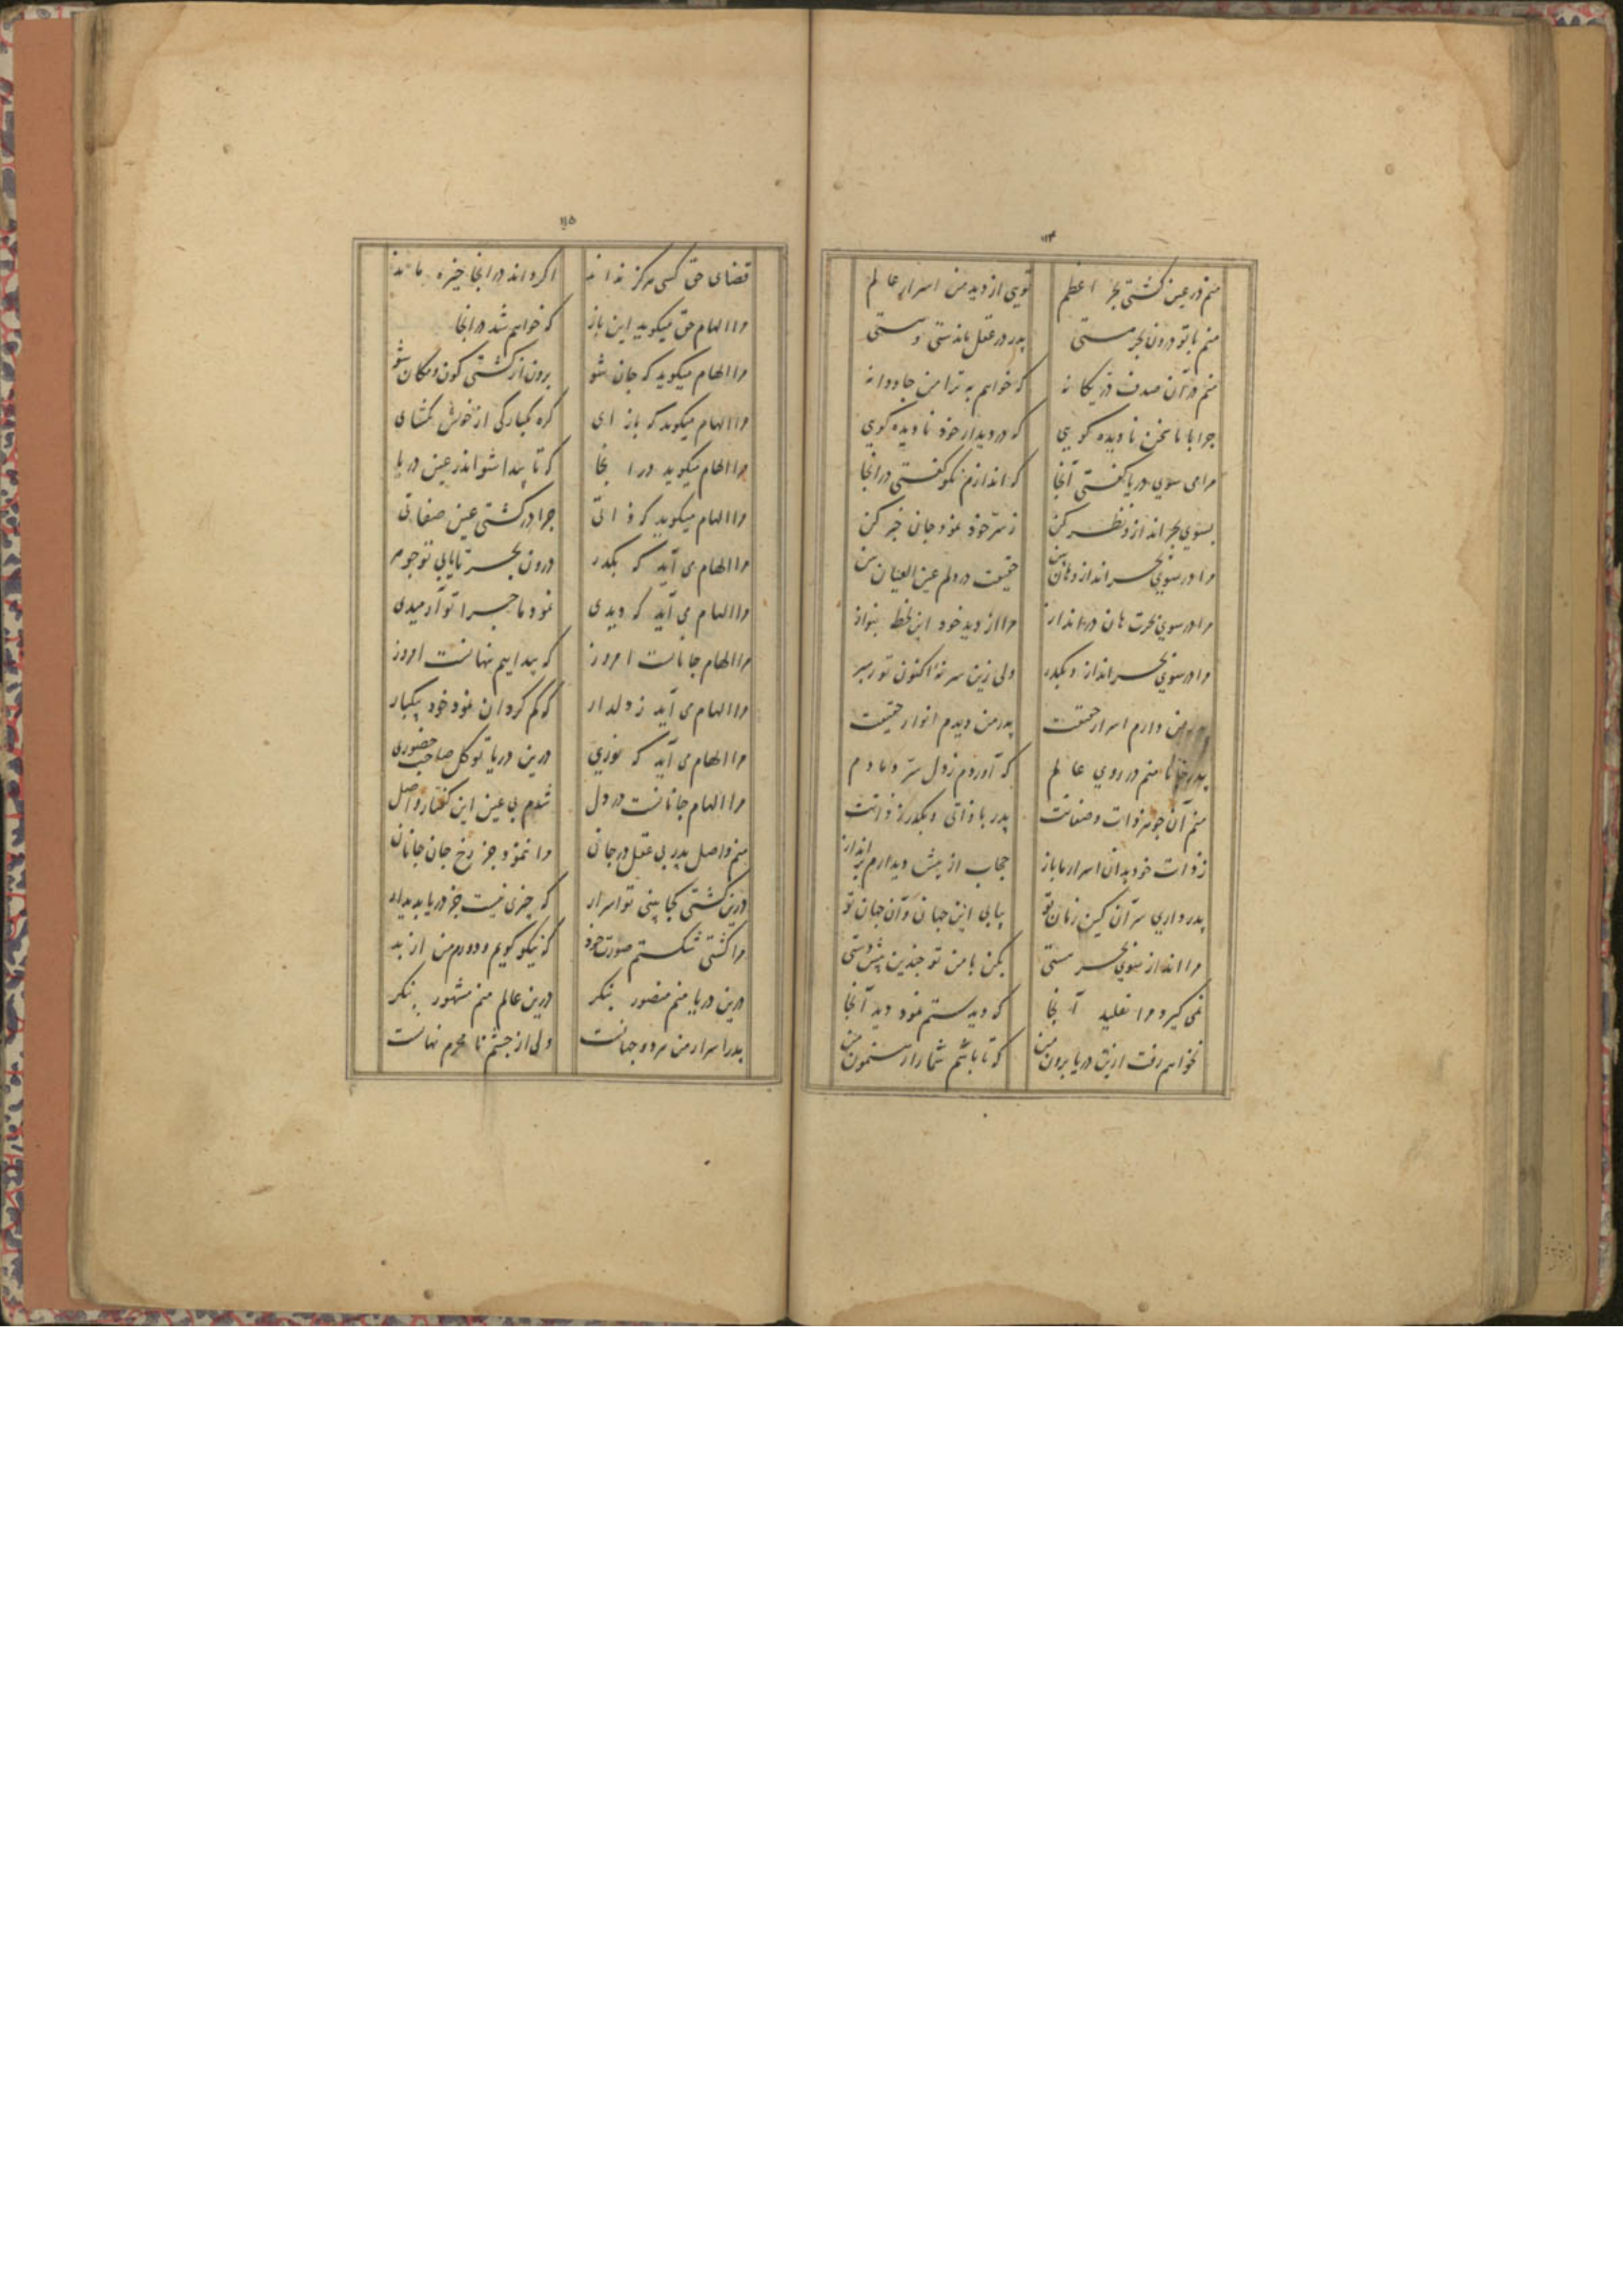 ۱۱۴
منم در عین کشتی بحر اعظم تویی از دید من اسرار عالم
منم با تو درون بحر مستی پدر در عقل ماندستی و مستی
منم در آن صدف در یکانه که خواهم به ترا من جاودانه
چرا با ما سخن نادیده کویی که در دیدار خود نادیده کوی
مرا می سوی دریا کفتی آنجا که اندازم نکو کفتی در آنجا
بسوی بحر انداز و نظر کن ز سر خود نمود جان خبر کن
مرا در سوی بحر انداز و هان بین حقیقت در دلم عین العیان بین
مرا در سوی بحرت هان در انداز مرا از دید خود این لحظه بنواز
مرا در سوی بحر انداز و بکذر ولی زین سر نه اکنون تو رهبر
من دارم اسرار حقیقت پدر من دیدم انوار حقیقت
پدر منم در روی عالم که آوردم ز دل سر دمادم
منم آن جوهر ذات و صفاتت پدر با ذاتی و بکذر ز ذاتت
ز ذات خود بدان اسرار ما باز حجاب از پیش دیدارم برانداز
پدر داری سر آن کین زمان تو بیابی این جهان و آن جهان تو
مرا انداز سوی بحر مستی مکن با من تو چندین پیش دستی
نمی کیرد مرا تقلید آنجا که دیدستم نمود دید آنجا
نخواهم رفت ازین دریا برون من که تا باشم شما را رهنمون من
۱۱۵
قضای حق کسی هرکز نداند اکر داند در انجا خیره ماند
مرا الهام حق میکوید این باز که خواهم شد در انجا
مرا الهام میکوید که جان شو برون از کشتی کون و مکان شو
مرا الهام میکوید که باز ای کره یکبارکی از خویش بکشای
مرا الهام میکوید در انجا که تا پیدا شو اندر عین دریا
مرا الهام میکوید که ذاتی چرا در کشتی عین صفاتی
مرا الهام می آید که بکذر درون بحر تا یابی تو جوهر
مرا الهام می آید که دیدی نمود ما چرا تو آرمیدی
مرا الهام جانانست امروز که پیدا ییم نهانست امروز
مرا الهام می آید ز دلدار که کم کردان نمود خود بیکبار
مرا الهام می آید که نوری درین دریا تو کل صاحب حضوری
مرا الهام جانانست در دل شدم بی عین این کفتار واصل
منم واصل پدر بی عقل در جان مرا ننمود جز رخ جان جانان
درین کشتی کجا بینی تو اسرار که چیزی نیست جز دریا پدیدار
مرا کشتی شکستم صورت خود که نیکو کویم و دورم من از بد
درین دریا منم منصور بنکر درین عالم منم مشهور بنکر
پدر اسرار من هر دو جهانست ولی از چشم نامحرم نهانست